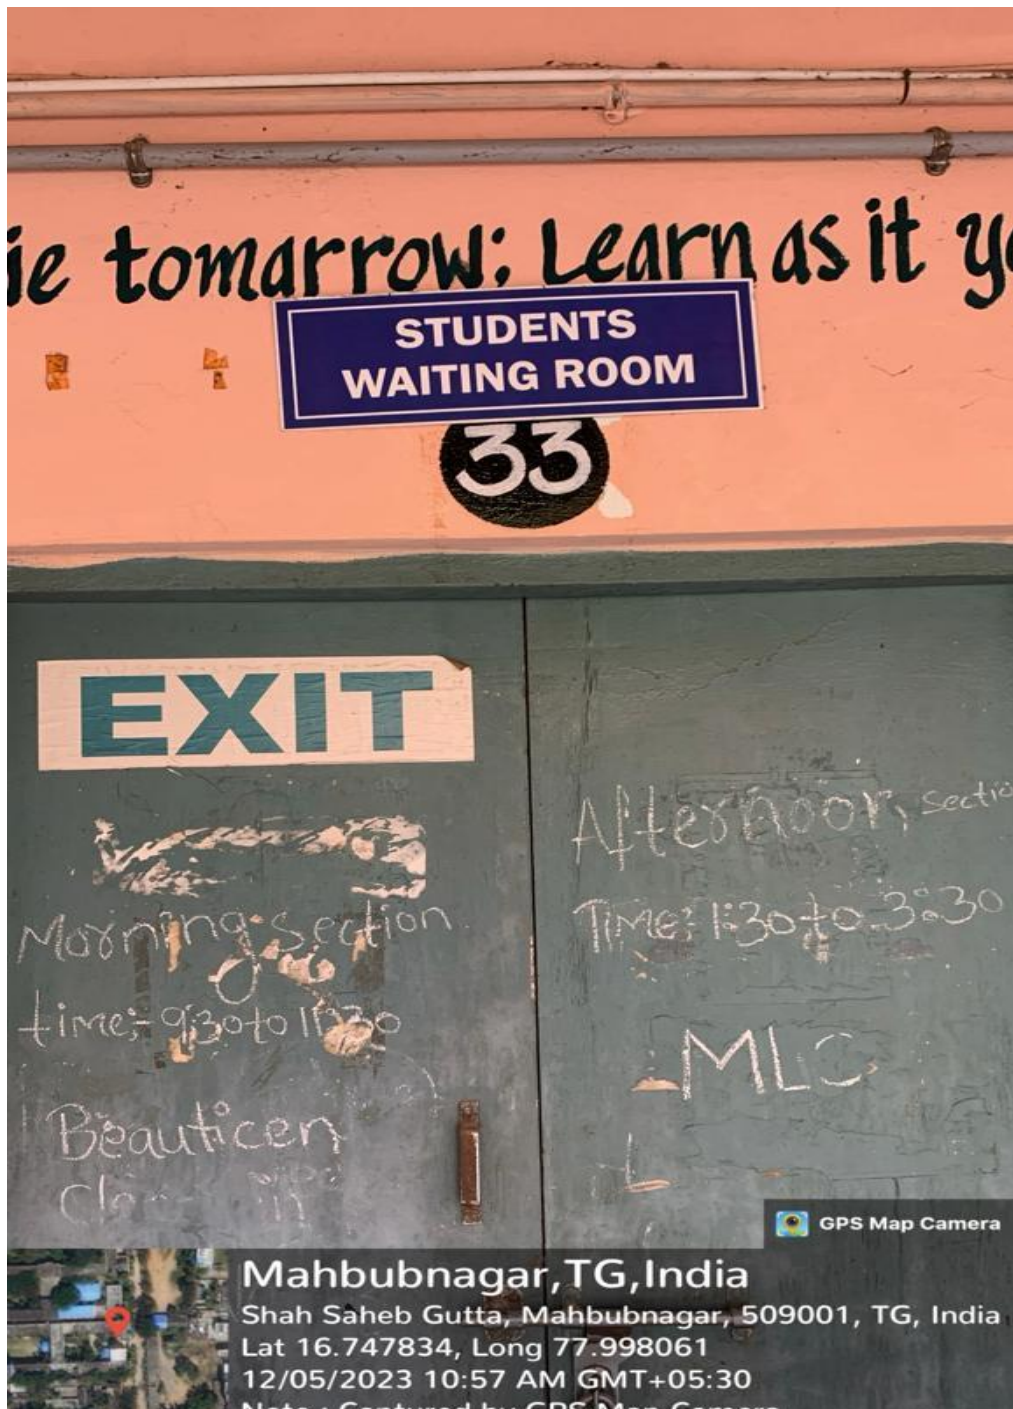 ie tomarrow: Learn as it yo
STUDENTS
WAITING ROOM
33
EXIT
Morning section
time:- 9:30 to 11:30
Beauticen
Afternoon section
TIME: 1:30 to 3:30
MLC
L
GPS Map Camera
Mahbubnagar,TG,India
Shah Saheb Gutta, Mahbubnagar, 509001, TG, India
Lat 16.747834, Long 77.998061
12/05/2023 10:57 AM GMT+05:30
Note : Captured by GPS Map Camera